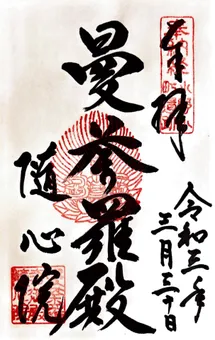 奉拝
曼荼羅殿
随心院
令和三年
三月三十日